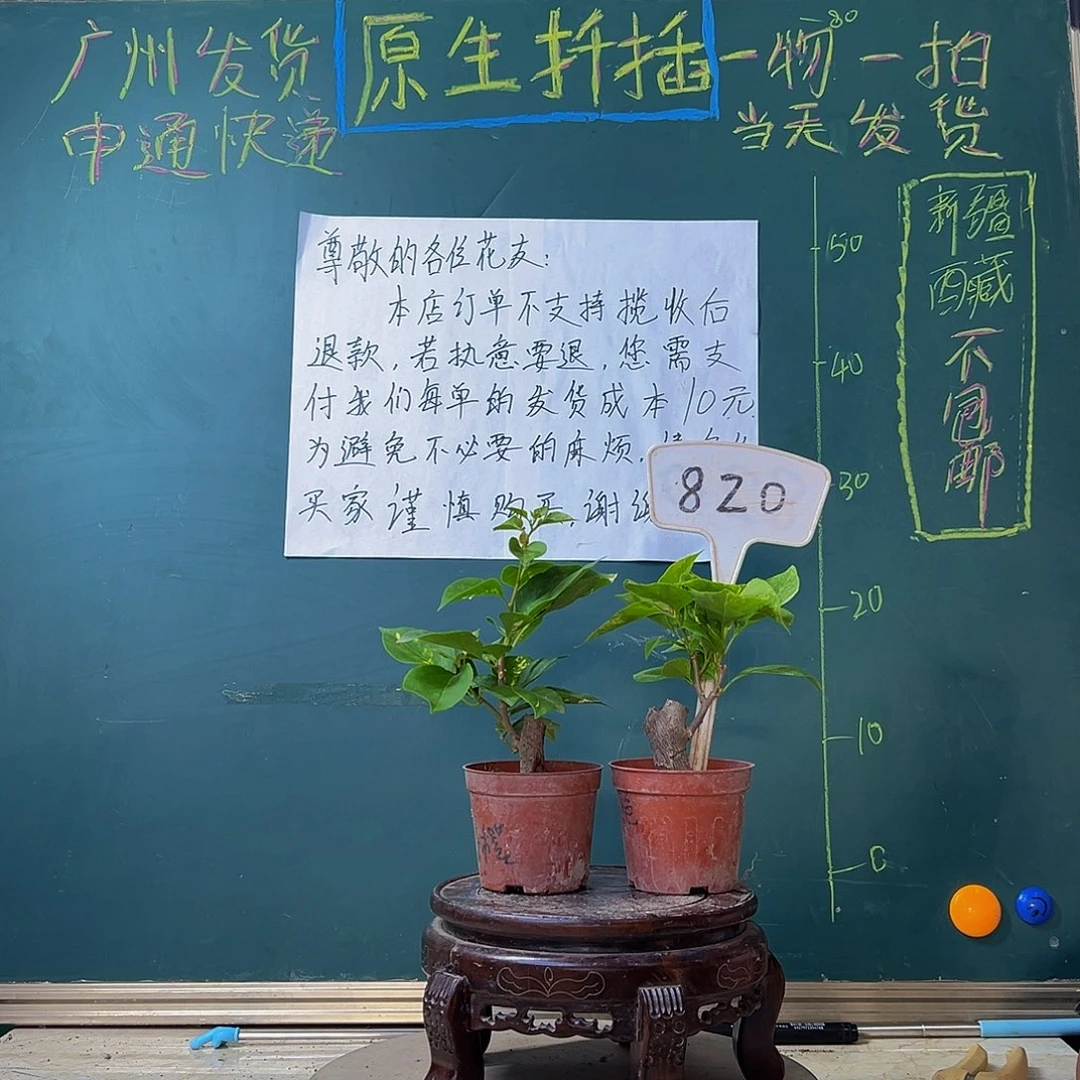 广州发货
申通快递
原生扦插
一物一拍
80
当天发货
尊敬的各位花友:
本店订单不支持揽收后
退款,若执意要退,您需支
付我们每单的发货成本10元
为避免不必要的麻烦,
买家谨慎购买,谢
820
50
40
30
20
10
0
新疆
西藏
不
包
邮